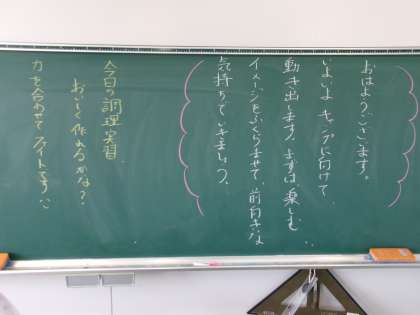 おはようございます。
いよいよキャンプに向けて
動き出します。まずは楽しむ
イメージをふくらませて、前向きな
気持ちでいきましょう。
今日の調理実習
おいしく作れるかな？
力を合わせてファイトです!!